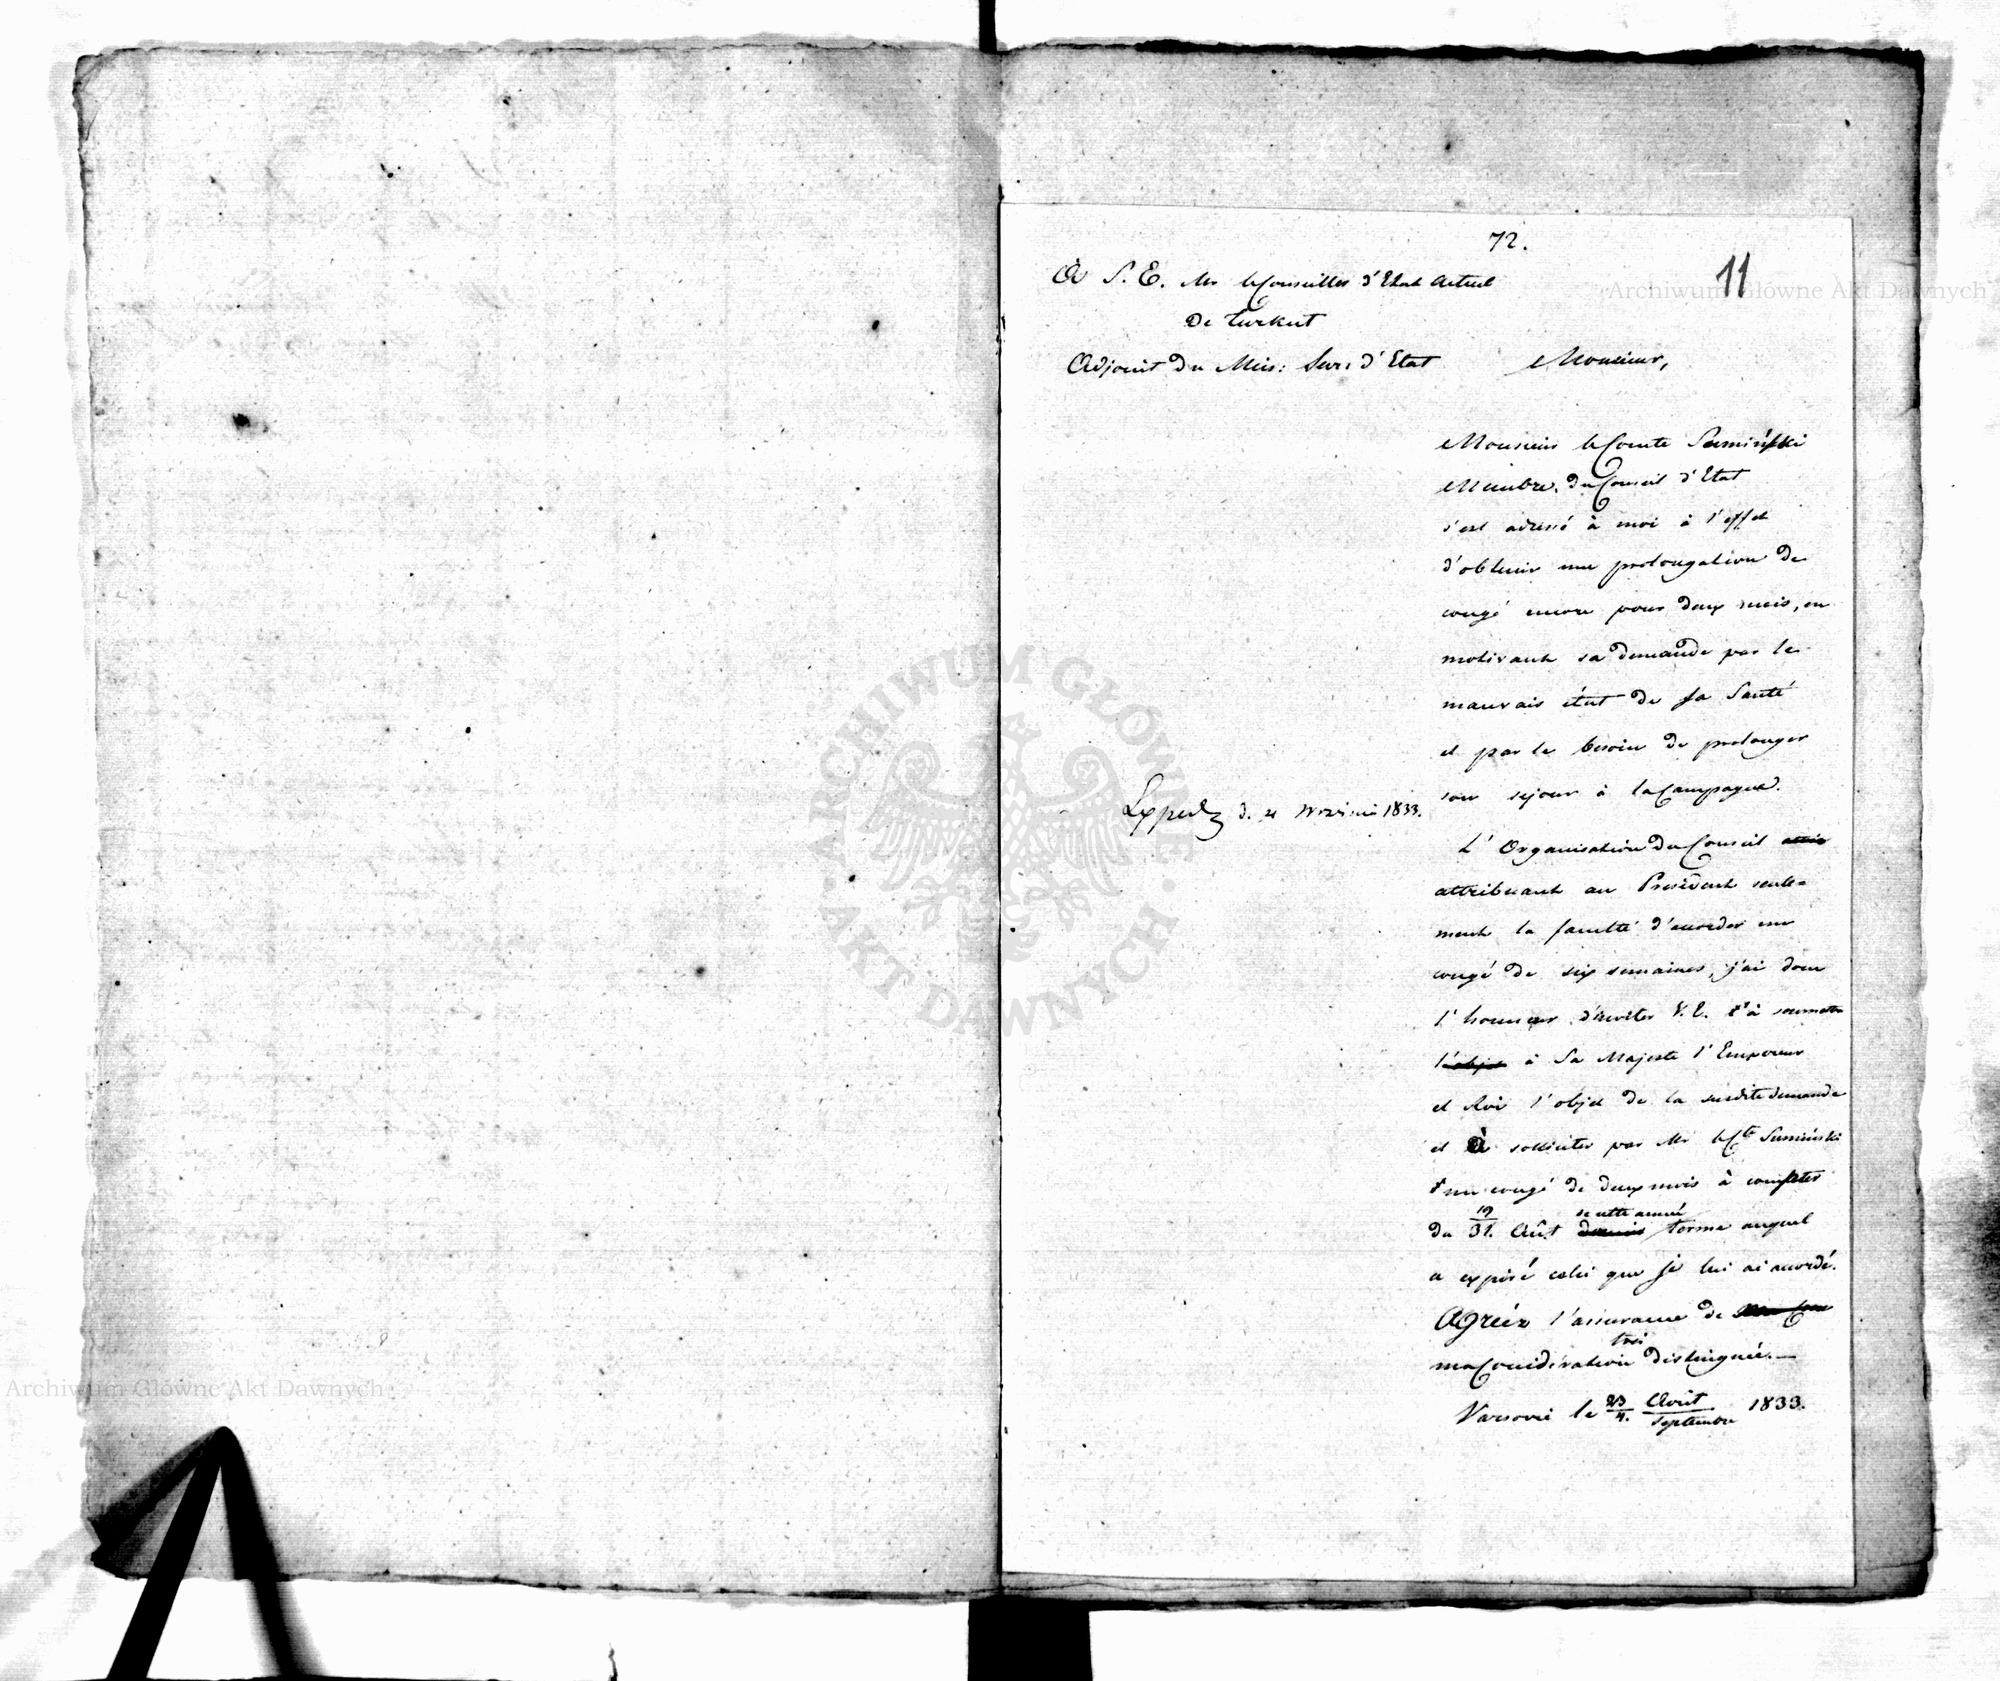 72.
11
A S. E. Mr le Conseiller d'Etat Actuel
De Turkut
Adjoint du Min: Secr. d'Etat
Monsieur,
Monsieur le Comte Sumiński
Membre du Conseil d'Etat
s'est adressé à moi à l'effet
d'obtenir une prolongation de
congé encore pour deux mois, en
motivant sa demande par le
mauvais état de sa Santé
et par le besoin de prolonger
son sejour à la Campagne.
Exped. d. 4 Września 1833.
L'Organisation du Conseil
attribuant au President seule=
ment la faculté d'accorder un
congé de six semaines, j'ai donc
l'honneur d'inviter V. E. à soumettre
à Sa Majesté l'Empereur
et Roi l'objet de la susdite demande
et à solliciter par Mr le Cte Sumiński
un congé de deux mois à compter
du 19/31. Aût de cette année terme auquel
a expiré celui que je lui ai accordé.
Agréez l'assurance de
ma Considération très distinguée.—
Varsovie le 23/4. Août/Septembre 1833.
Archiwum Główne Akt Dawnych
ARCHIWUM GŁÓWNE AKT DAWNYCH
Archiwum Główne Akt Dawnych